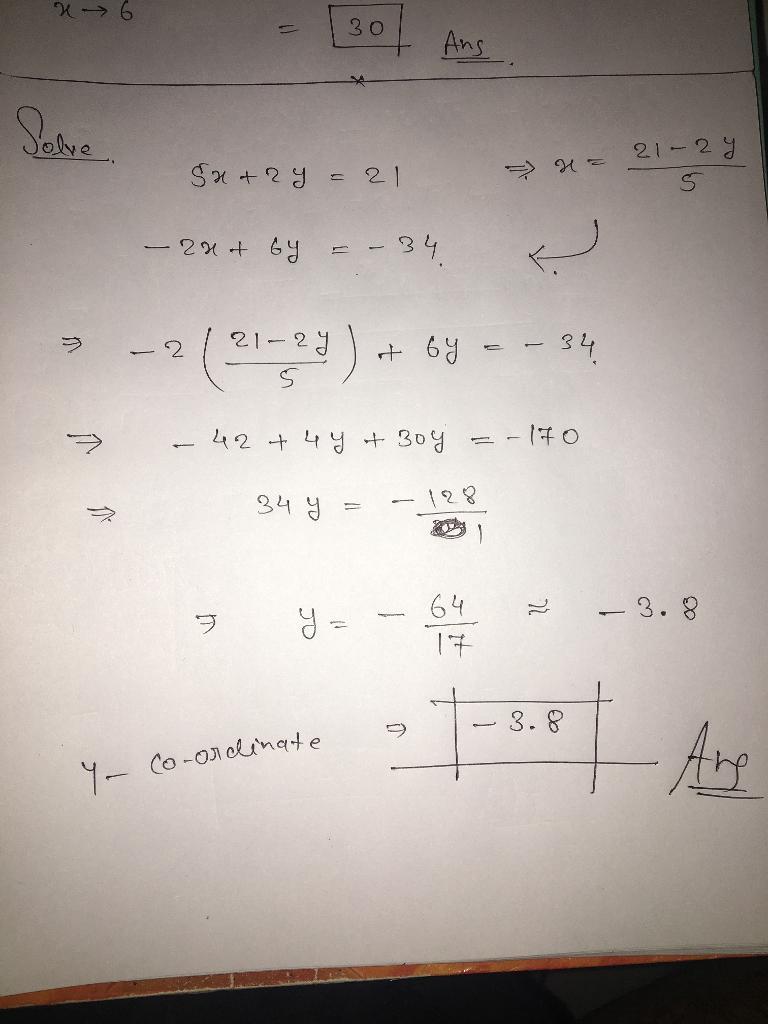 x → 6
= 30 Ans.
Solve.
5x + 2y = 21 ⇒ x = (21 - 2y)/5
- 2x + 6y = - 34.
⇒ - 2 ( (21 - 2y)/5 ) + 6y = - 34.
⇒ - 42 + 4y + 30y = - 170
⇒ 34 y = - 128/1
⇒ y = - 64/17 ≈ - 3.8
y - co-ordinate ⇒ - 3.8 Ans